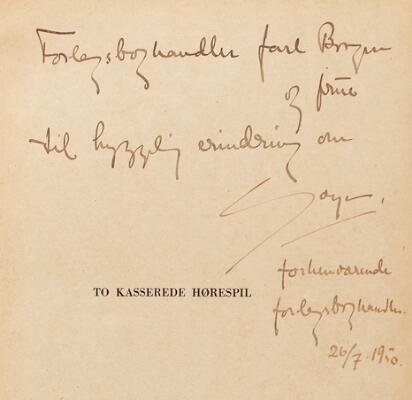 Forlagsboghandler Carl Bogen
og frue
til hyggelig erindring om
Soya.
TO KASSEREDE HØRESPIL
forhenværende
forlagsboghandler.
26/7. 1950.